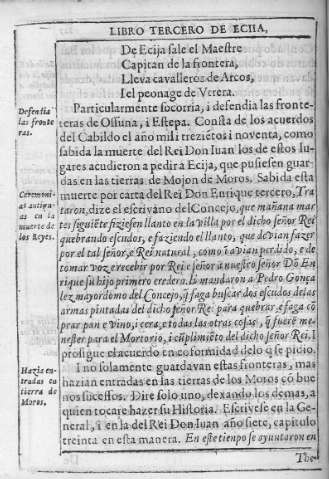 LIBRO TERCERO DE ECIIA,
De Ecija sale el Maestre
Capitan de la frontera,
Lleva cavalleros de Arcos,
I el peonage de Vtrera.
Particularmente socorria, i defendia las fronte-
teras de Ossuna, i Estepa. Consta de los acuerdos
del Cabildo el año mil i treziẽtos i noventa, como
sabida la muerte del Rei Don Iuan los de estos lu-
gares acudieron a pedir a Ecija, que pusiesen guar-
das en las tierras de Mojon de Moros. Sabida esta
muerte por carta del Rei Don Enrique tercero, Tra
taron, dize el escrivano del Concejo, que mañana mar
tes siguiẽte fiziesen llanto en la villa por el dicho señor Rei
quebrando escudos, e faziendo el llanto, que devian fazer
por el tal señor, e Rei natural, como i avian perdido, e de
tomar voz, e recebir por Rei e señor a nuestro señor Dõ En
rique su hijo primero eredero. Ia mandaron a Pedro Gonça
lez mayordomo del Concejo, q̃ faga buscar dos escudos de las
armas pintadas del dicho señor Rei para quebrar, e faga cõ
prar pan e vino, i cera, e todas las otras cosas, q̃ fuerẽ me-
nester para el Mortorio, i cũplimiẽto del dicho señor Rei. I
prosigue el acuerdo en conformidad de lo q̃ se pidio.
I no solamente guardavan estas fronteras, mas
hazian entradas en las tierras de los Moros cõ bue
nos sucessos. Dire solo uno, dexando los demas, a
quien tocare hazer su Historia. Escrivese en la Ge-
neral, i en la del Rei Don Iuan año siete, capitulo
treinta en esta manera. En este tiempo se ayuntaron en
The
Defendia
las fronte
ras.
Ceremoni-
as antigu-
as en la
muerte de
los Reyes.
Hazia en-
tradas en
tierra de
Moros.